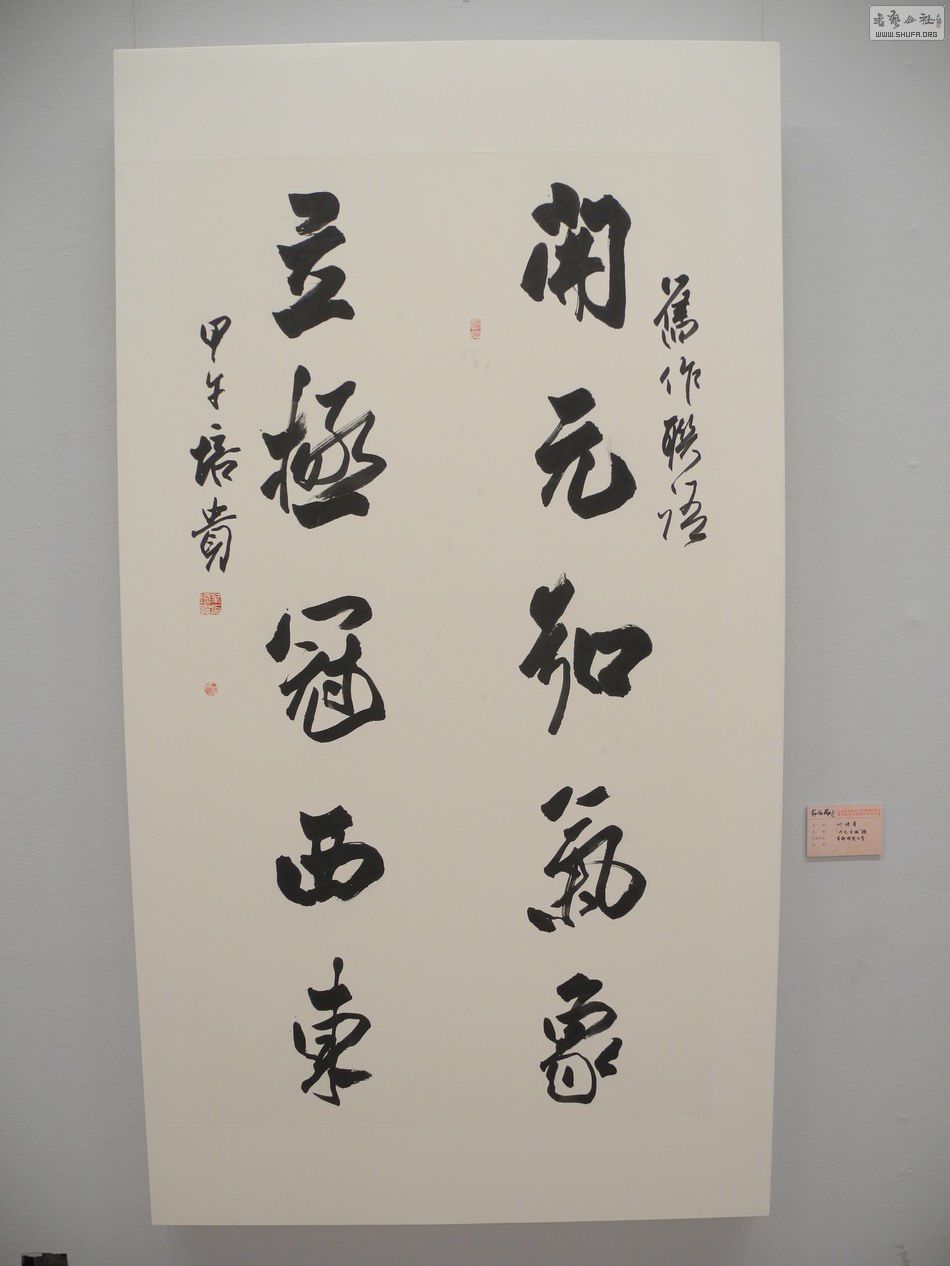 舊作聯語
開元知氣象
立極冠西東
甲午培貴
書藝公社
WWW.SHUFA.ORG